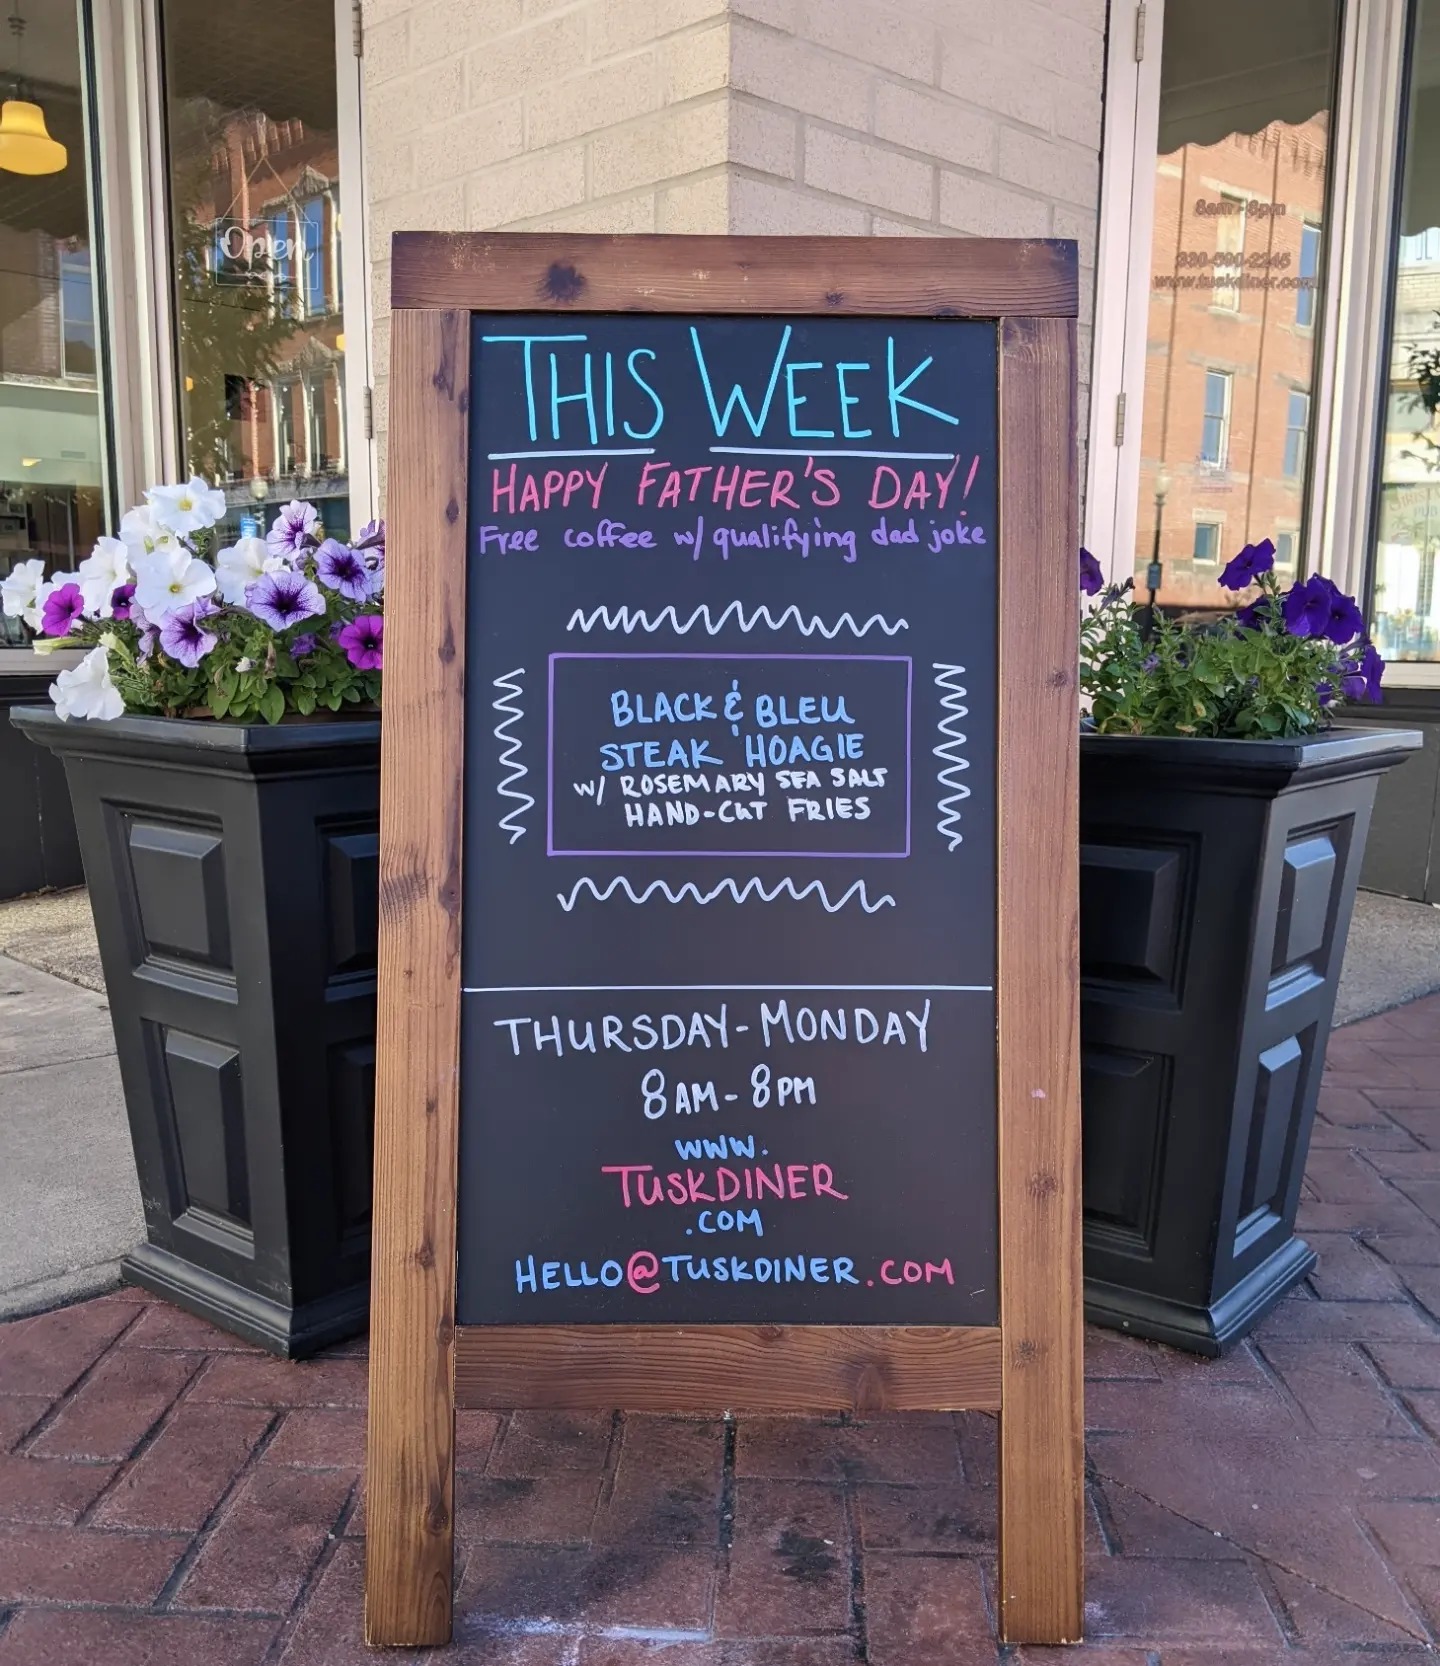 Open
8am - 8pm
330-590-2245
www.tuskdiner.com
THIS WEEK
HAPPY FATHER'S DAY!
Free coffee w/ qualifying dad joke
BLACK & BLEU
STEAK HOAGIE
w/ ROSEMARY SEA SALT
HAND-CUT FRIES
THURSDAY-MONDAY
8AM-8PM
www.
TUSKDINER
.COM
HELLO@TUSKDINER.COM